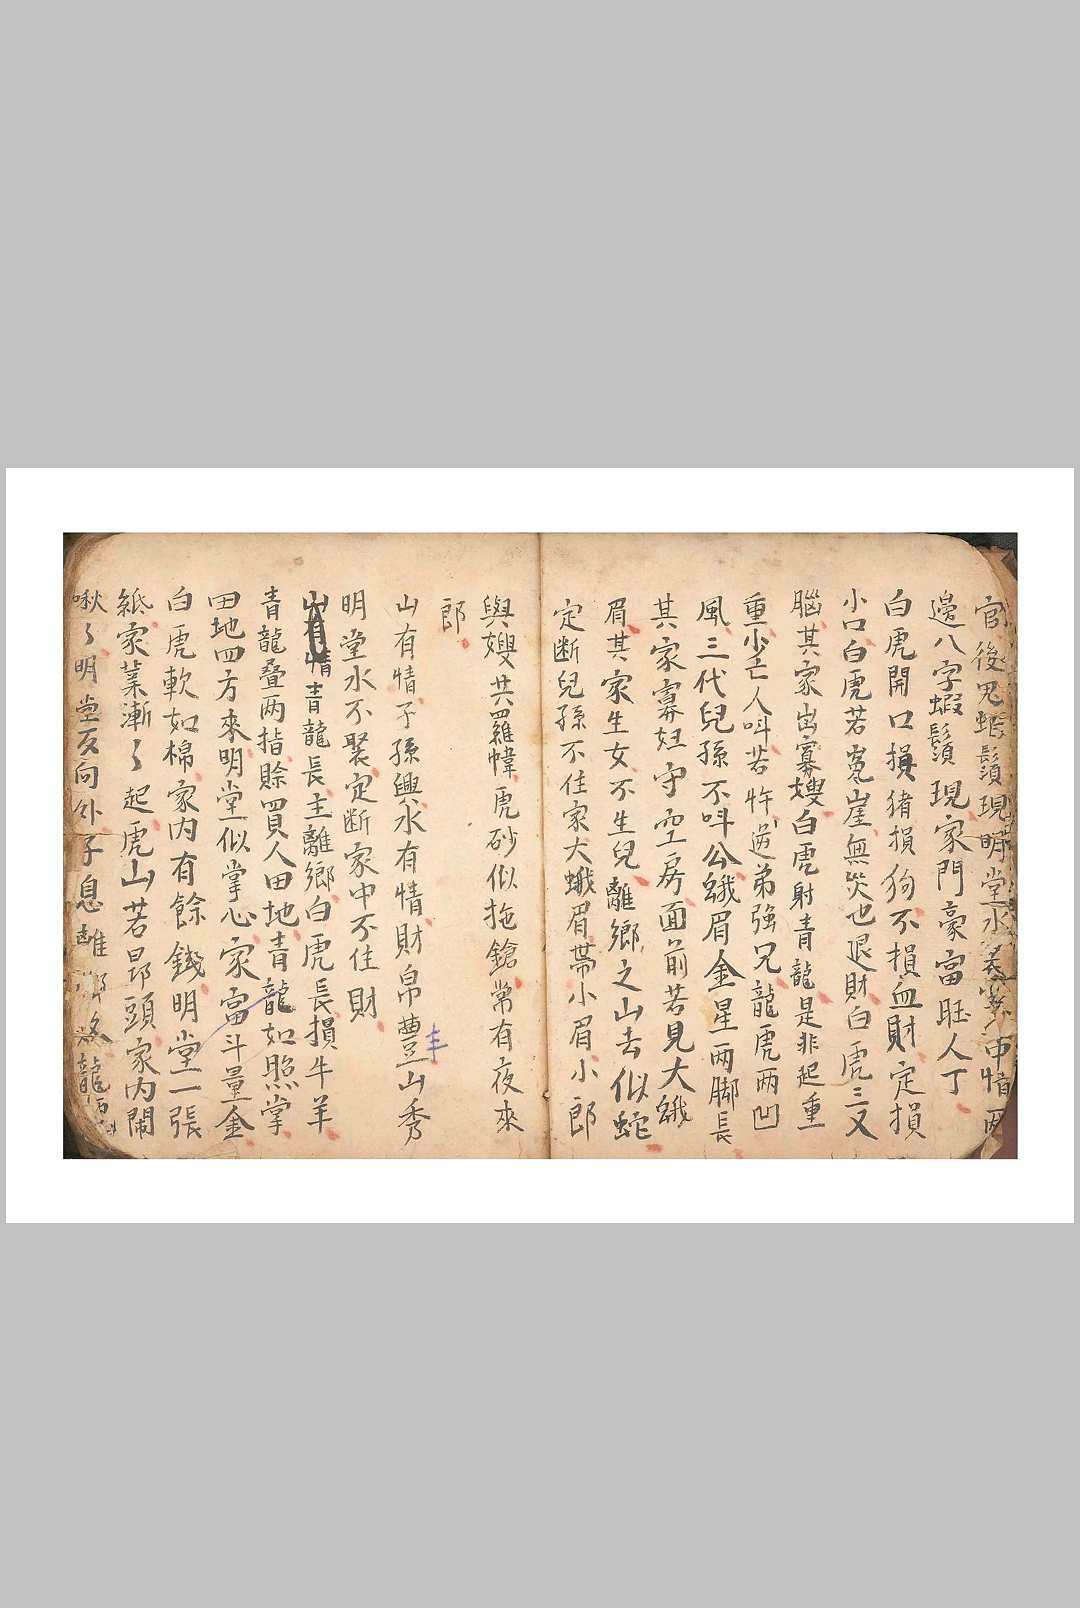 官後鬼蝦鬚現明堂水
邊八字蝦鬚現家門豪富旺人丁
白虎開口損猪損狗不損血財定損
小口白虎若崽崖無災也退財白虎三叉
腦其家出寡嫂白虎射青龍是非起重
重少亡人呌若忤逆弟強兄龍虎两凹
風三代兒孫不呌公蛾眉金星两脚長
其家寡妇守空房面前若見大蛾
眉其家生女不生兒離鄉之山去似蛇
定断兒孫不住家大蛾眉帶小眉小郎
與嫂共羅幃虎砂似拖鎗常有夜來
郎
山有情子孫興水有情財帛豊山秀
丰
明堂水不聚定断家中不住財
青龍長主離鄉白虎長損牛羊
青龍叠两指賒買人田地青龍如照掌
田地四方來明堂似掌心家富斗量金
白虎軟如棉家内有餘錢明堂一張
紙家業漸〻起虎山若昂頭家内鬧
啾〻明堂反向外子息離